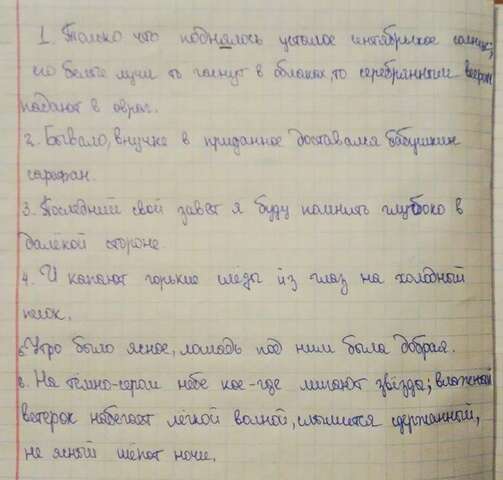 1. Только что поднялось усталое сентябрьское солнце,
его белые лучи то гаснут в облаках, то серебрянным веером
падают в овраг.
2. Бывало, внучке в приданное доставался бабушкин
сарафан.
3. Последний свой завет я буду помнить глубоко в
далёкой стороне.
4. И капают горькие слёзы из глаз на холодный
песок.
5. Утро было ясное, лошадь под ним была добрая.
6. На тёмно-сером небе кое-где мигают звёзда; влажный
ветерок набегает лёгкой волной, слышится сдержанный,
не ясный шёпот ночи.